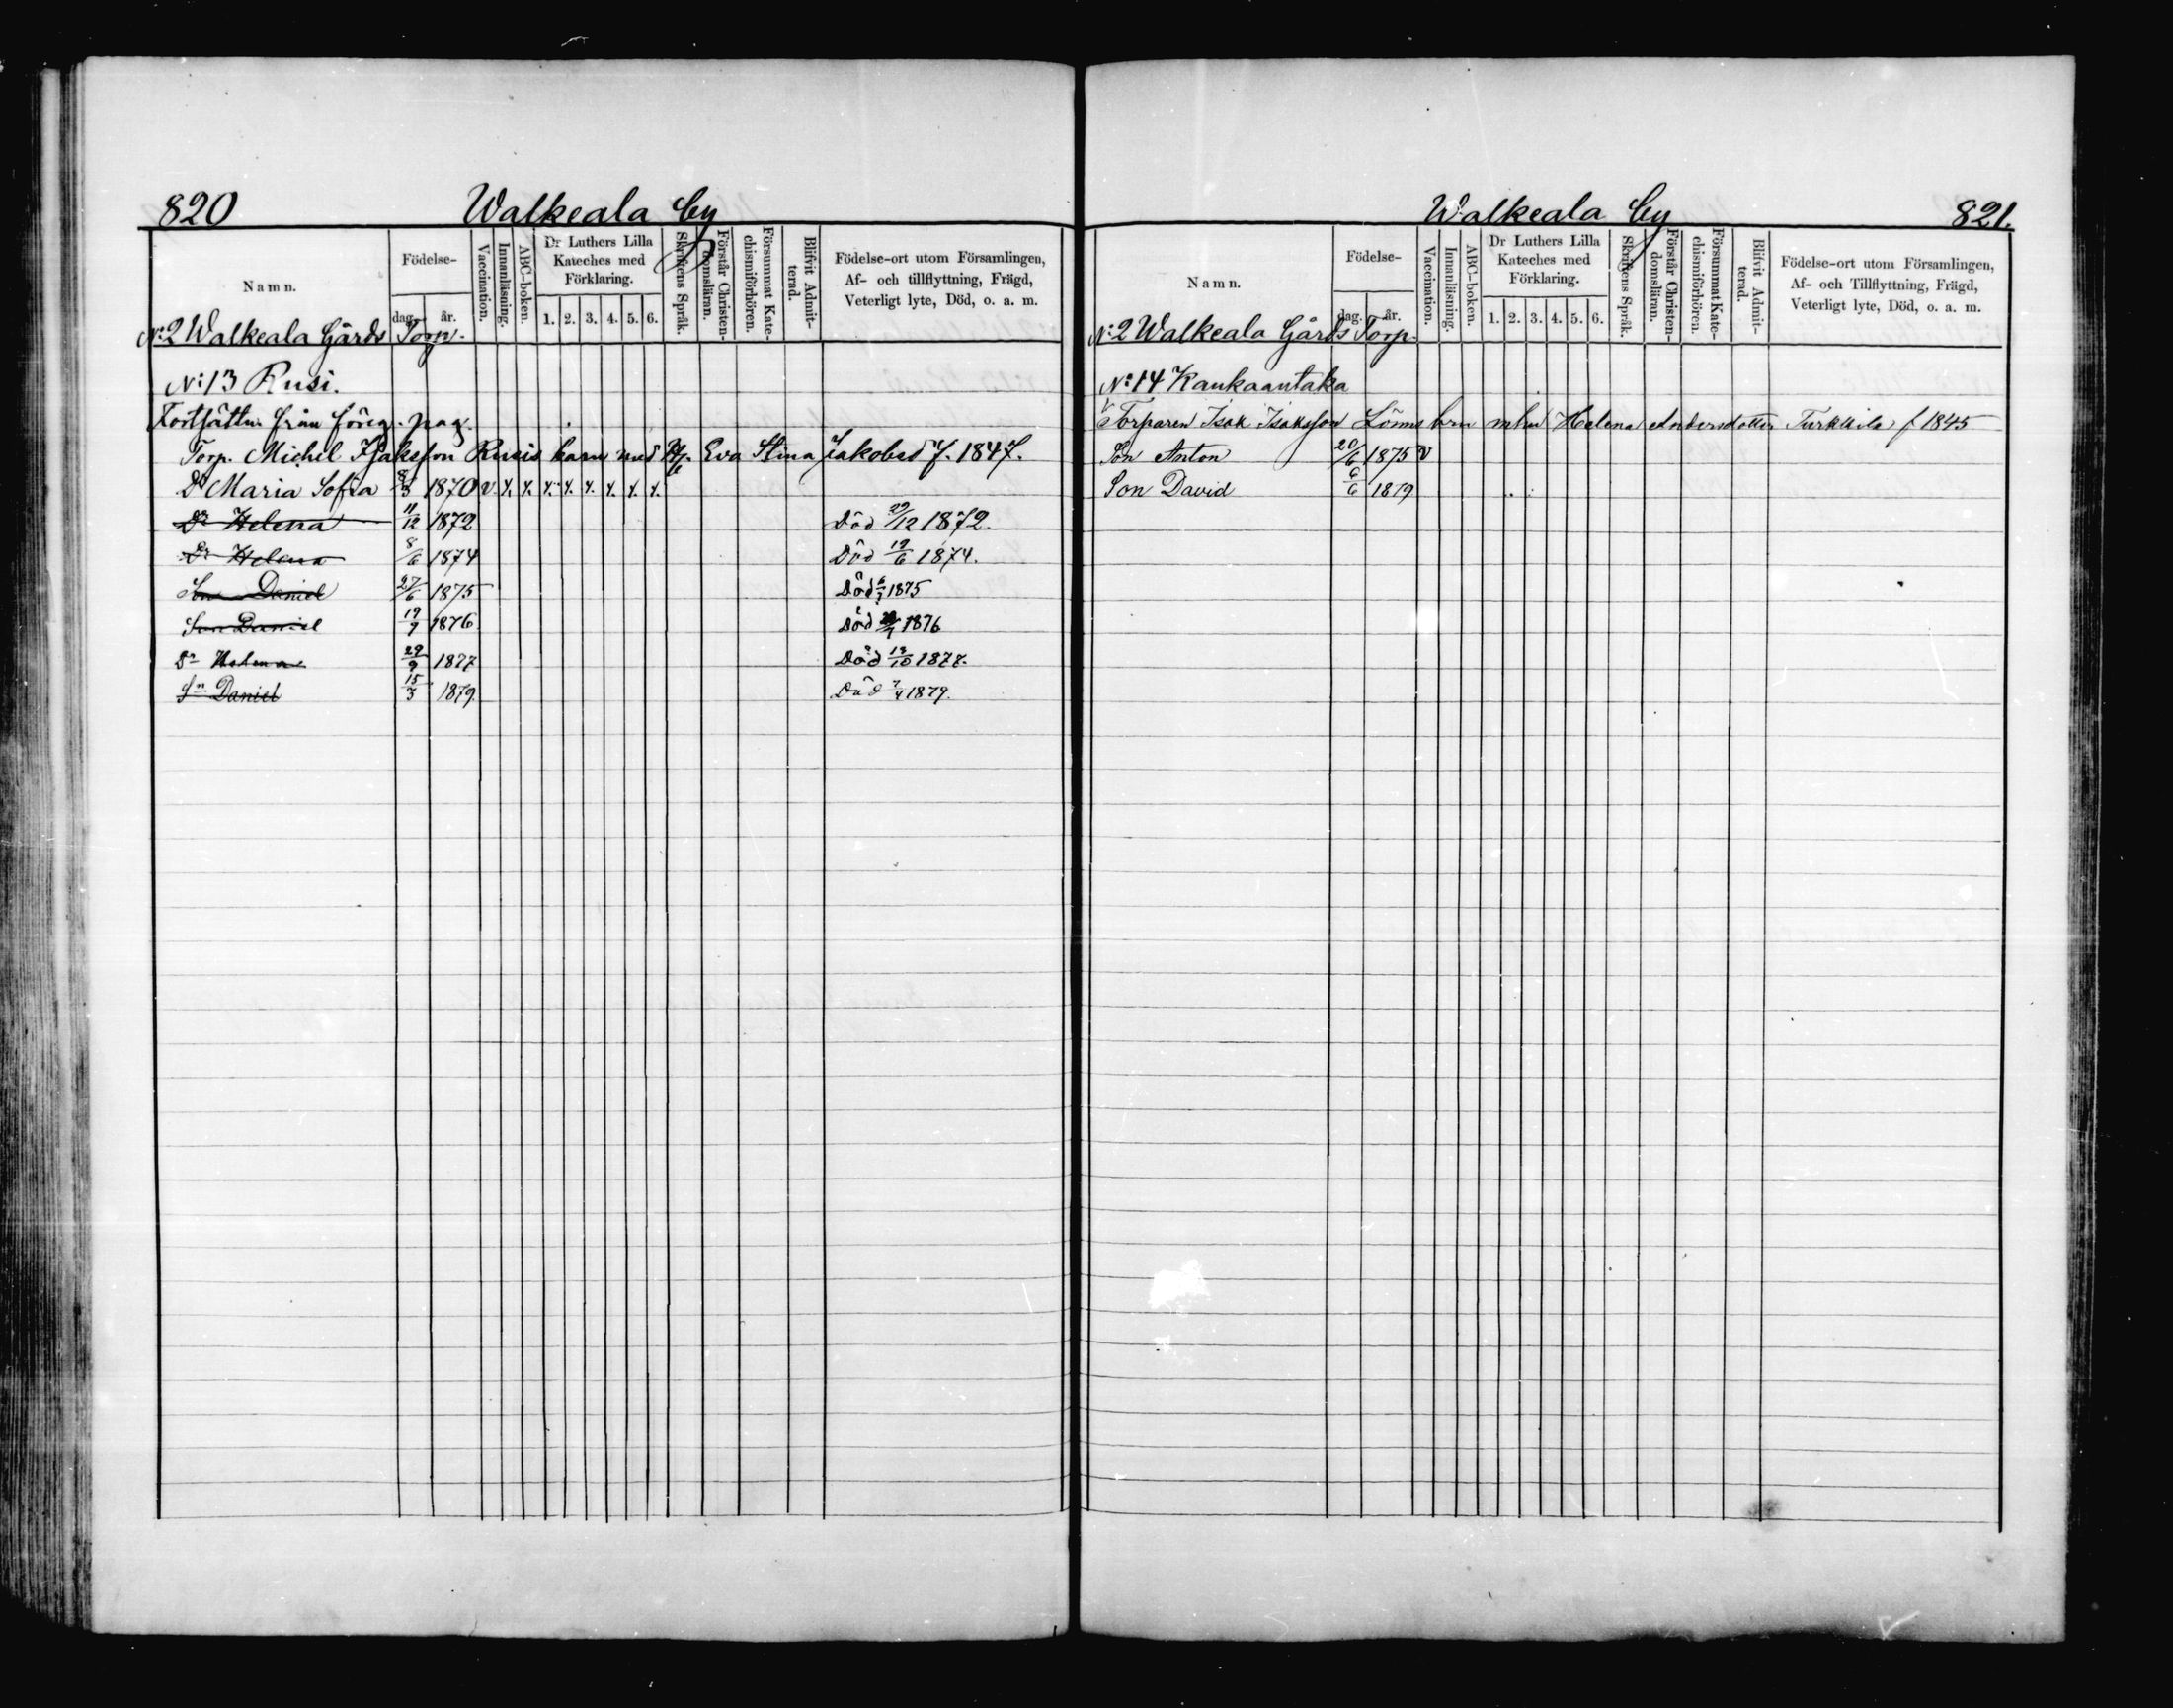 820 Walkeala by
Namn.
Födelse-
dag. år.
Vaccination.
Innanläsning.
ABC-boken.
Dr Luthers Lilla Kateches med Förklaring.
1. 2. 3. 4. 5. 6.
Skriftens Språk.
Förstår Christendomsläran.
Försummat Katechismiförhören.
Blifvit Admitterad.
Födelse-ort utom Församlingen, Af- och tillflyttning, Frägd, Veterligt lyte, Död, o. a. m.
No 2 Walkeala Gårds Torp.
No 13 Rusi.
Fortsättn. från föreg. pag.
Torp. Michel Isaksson Rusis barn med Eva Stina Jakobsd f. 1847.
Dr Maria Sofia 1870 v x. x. x. x. x. x. x. x.
Dr Helena 11/12 1872 Död 29/12 1872.
Dr Helena 8/6 1874 Död 19/6 1874.
Son Daniel 27/6 1875 Död 1875
Son Daniel 1876 Död 1876
Dr Helena 29/9 1877 Död 13/10 1877.
Sn Daniel 15/3 1879. Död 7/4 1879.
Walkeala by 821.
Namn.
Födelse-
dag. år.
Vaccination.
Innanläsning.
ABC-boken.
Dr Luthers Lilla Kateches med Förklaring.
1. 2. 3. 4. 5. 6.
Skriftens Språk.
Förstår Christendomsläran.
Försummat Katechismiförhören.
Blifvit Admitterad.
Födelse-ort utom Församlingen, Af- och Tillflyttning, Frägd, Veterligt lyte, Död, o. a. m.
No 2 Walkeala Gårds Torp.
No 14 Kaukaantaka
Torparen Isak Isaksson Lönns brn Helena Andersdotter f 1845
Son Anton 20/6 1875 v
Son David 6/6 1879